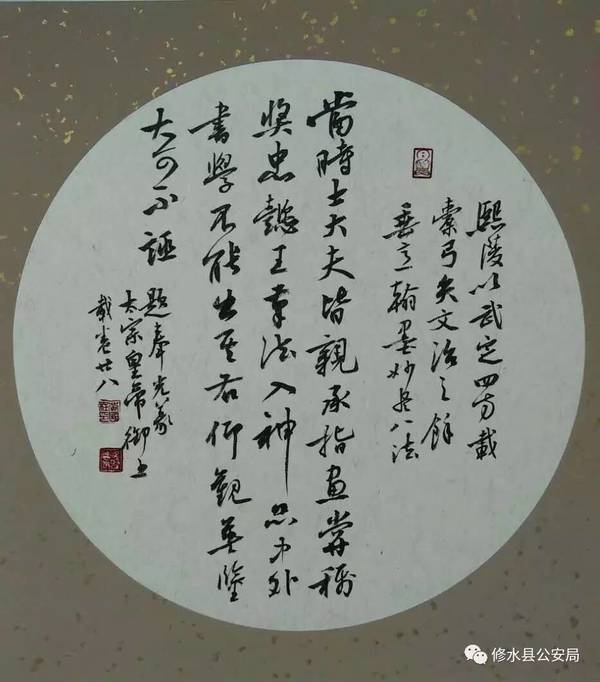 熙陵以武定四方載
櫜弓矢文治之餘
垂意翰墨妙盡八法
當時士大夫皆親承指畫嘗稱
獎忠懿王筆法入神品中外
書學不能出其右仰觀英隆
大可不誣
題奉先篆
太宗皇帝御書
載卷廿八
修水县公安局